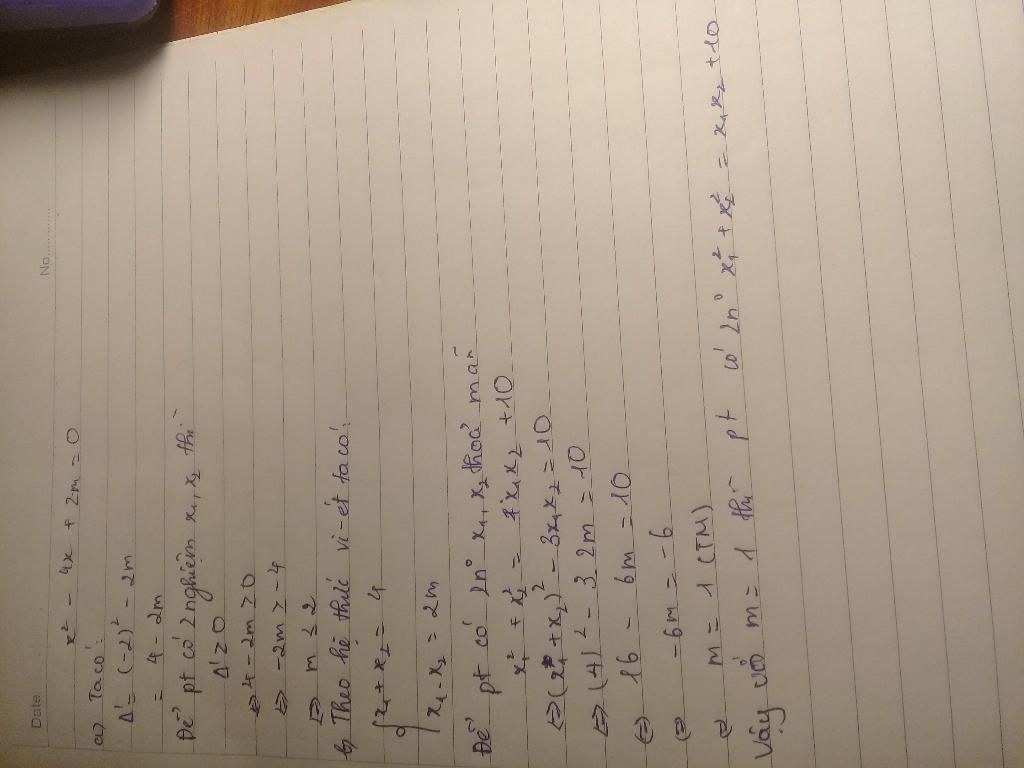 Date
No.
x² - 4x + 2m = 0
a) Ta có:
Δ' = (-2)² - 2m
= 4 - 2m
Để pt có 2 nghiệm x₁, x₂ thì
Δ' ≥ 0
⇔ 4 - 2m ≥ 0
⇔ -2m ≥ -4
⇔ m ≤ 2
b, Theo hệ thức vi-ét ta có:
{ x₁ + x₂ = 4
x₁ . x₂ = 2m
Để pt có 2n⁰ x₁, x₂ thoả mãn
x₁² + x₂² = x₁x₂ + 10
⇔ (x₁ + x₂)² - 3x₁x₂ = 10
⇔ (4)² - 3.2m = 10
⇔ 16 - 6m = 10
⇔ -6m = -6
⇔ m = 1 (TM)
Vậy với m = 1 thì pt có 2n⁰ x₁² + x₂² = x₁x₂ + 10